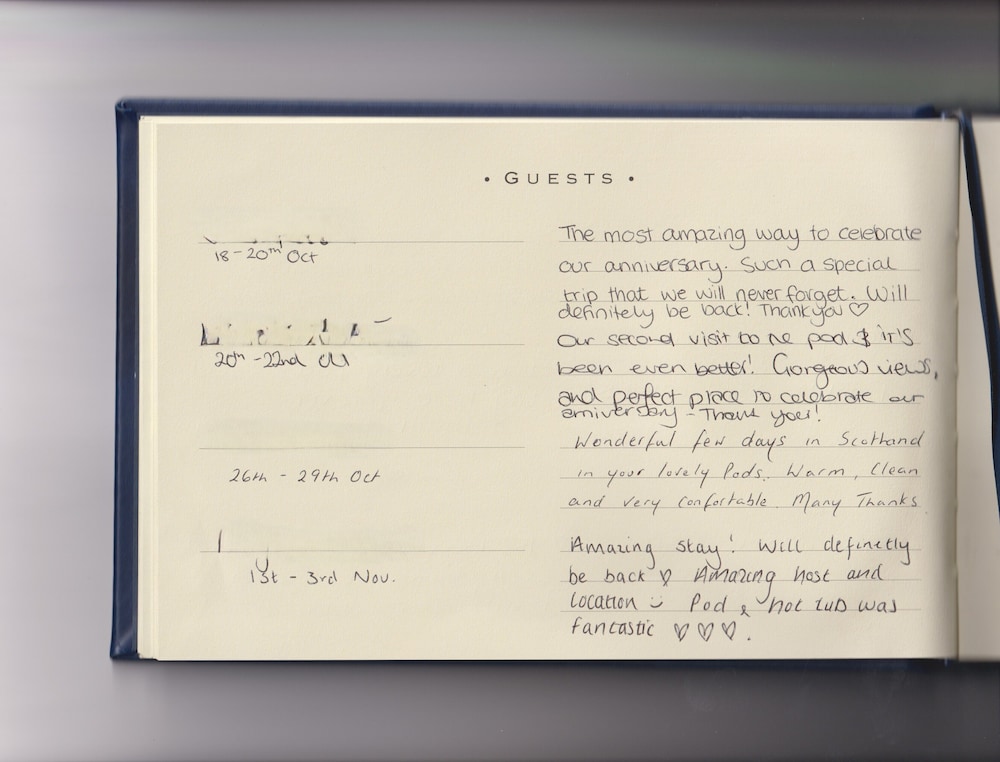 • GUESTS •
18-20th Oct
The most amazing way to celebrate
our anniversary. Such a special
trip that we will never forget. Will
definitely be back! Thankyou ♡
20th-22nd
Our second visit to the pod & it's
been even better! Gorgeous views,
and perfect place to celebrate our
anniversary - Thank you!
26th - 29th Oct
Wonderful few days in Scotland
in your lovely Pods. Warm, Clean
and very confortable. Many Thanks
1st - 3rd Nov.
Amazing stay! Will definetly
be back ♡ Amazing host and
location :) Pod & hot tub was
fantastic ♡♡♡.